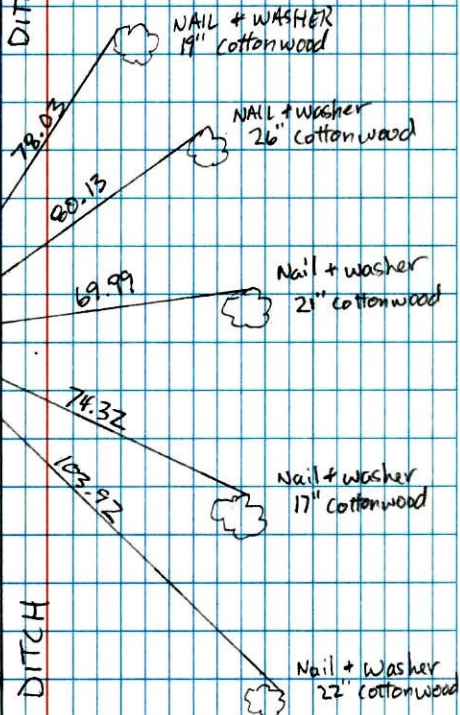 DIT
NAIL + WASHER
19" cottonwood
78.03
NAIL + washer
26" cottonwood
80.13
Nail + washer
21" cottonwood
69.99
74.32
Nail + washer
17" cottonwood
103.92
DITCH
Nail + washer
22" cottonwood